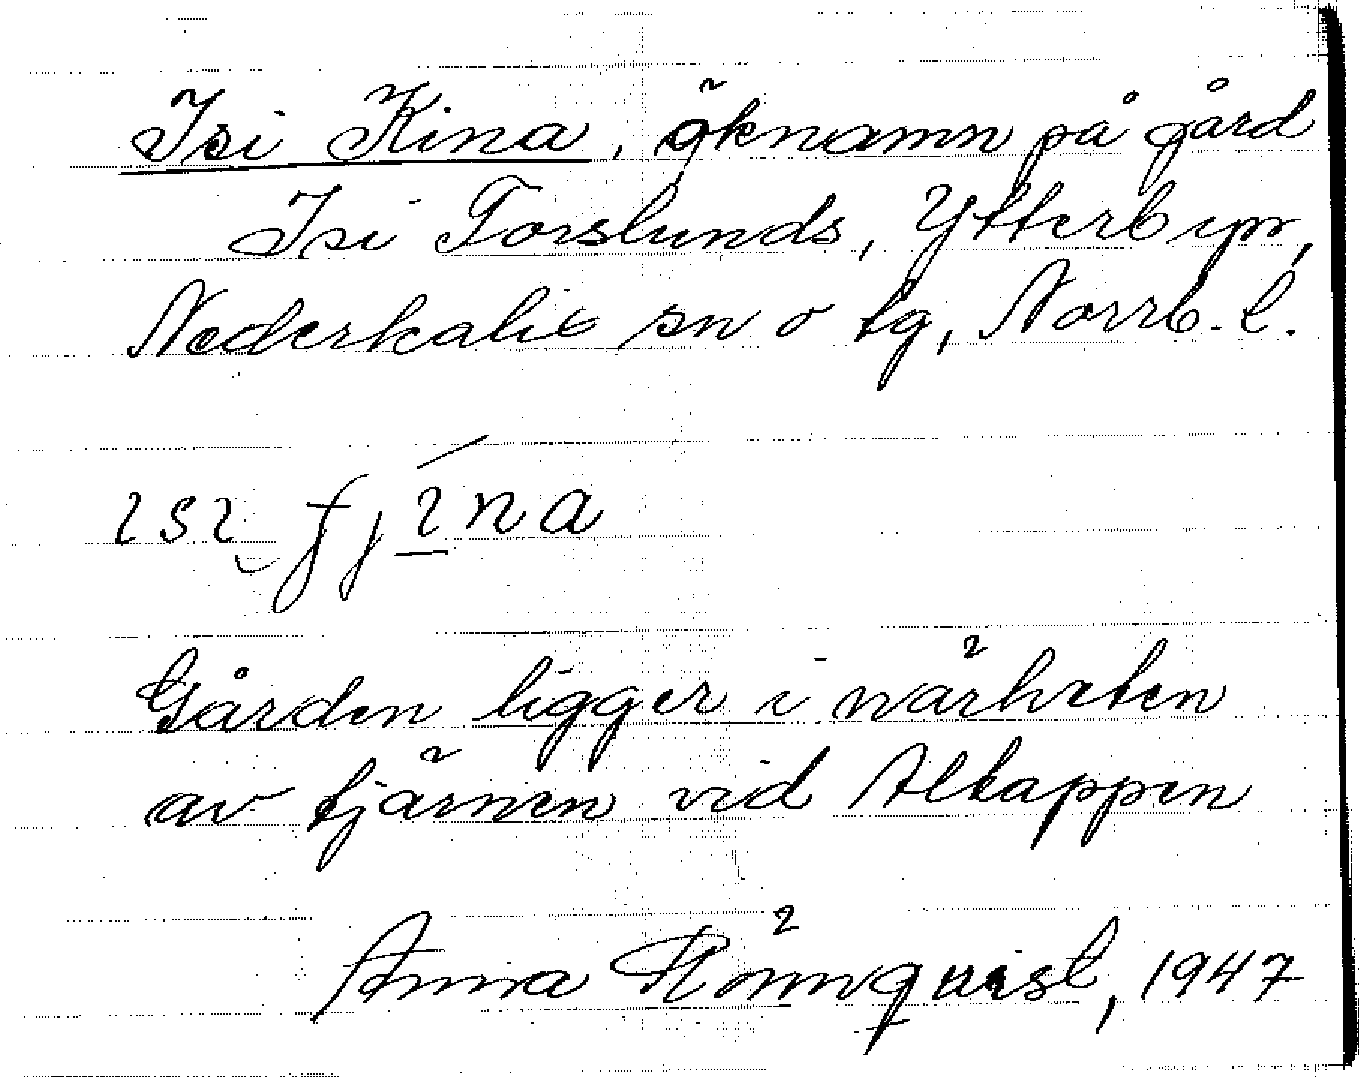 Isi Kina, öknamn på gård
Isi Forslunds, Ytterbyn,
Nederkalix sn o tg, Norrb. l.
ɩsɩ‿ʃȷɩ́na
Gården ligger i närheten
av tjärnen vid Altappen
Anna Rönnquist, 1947